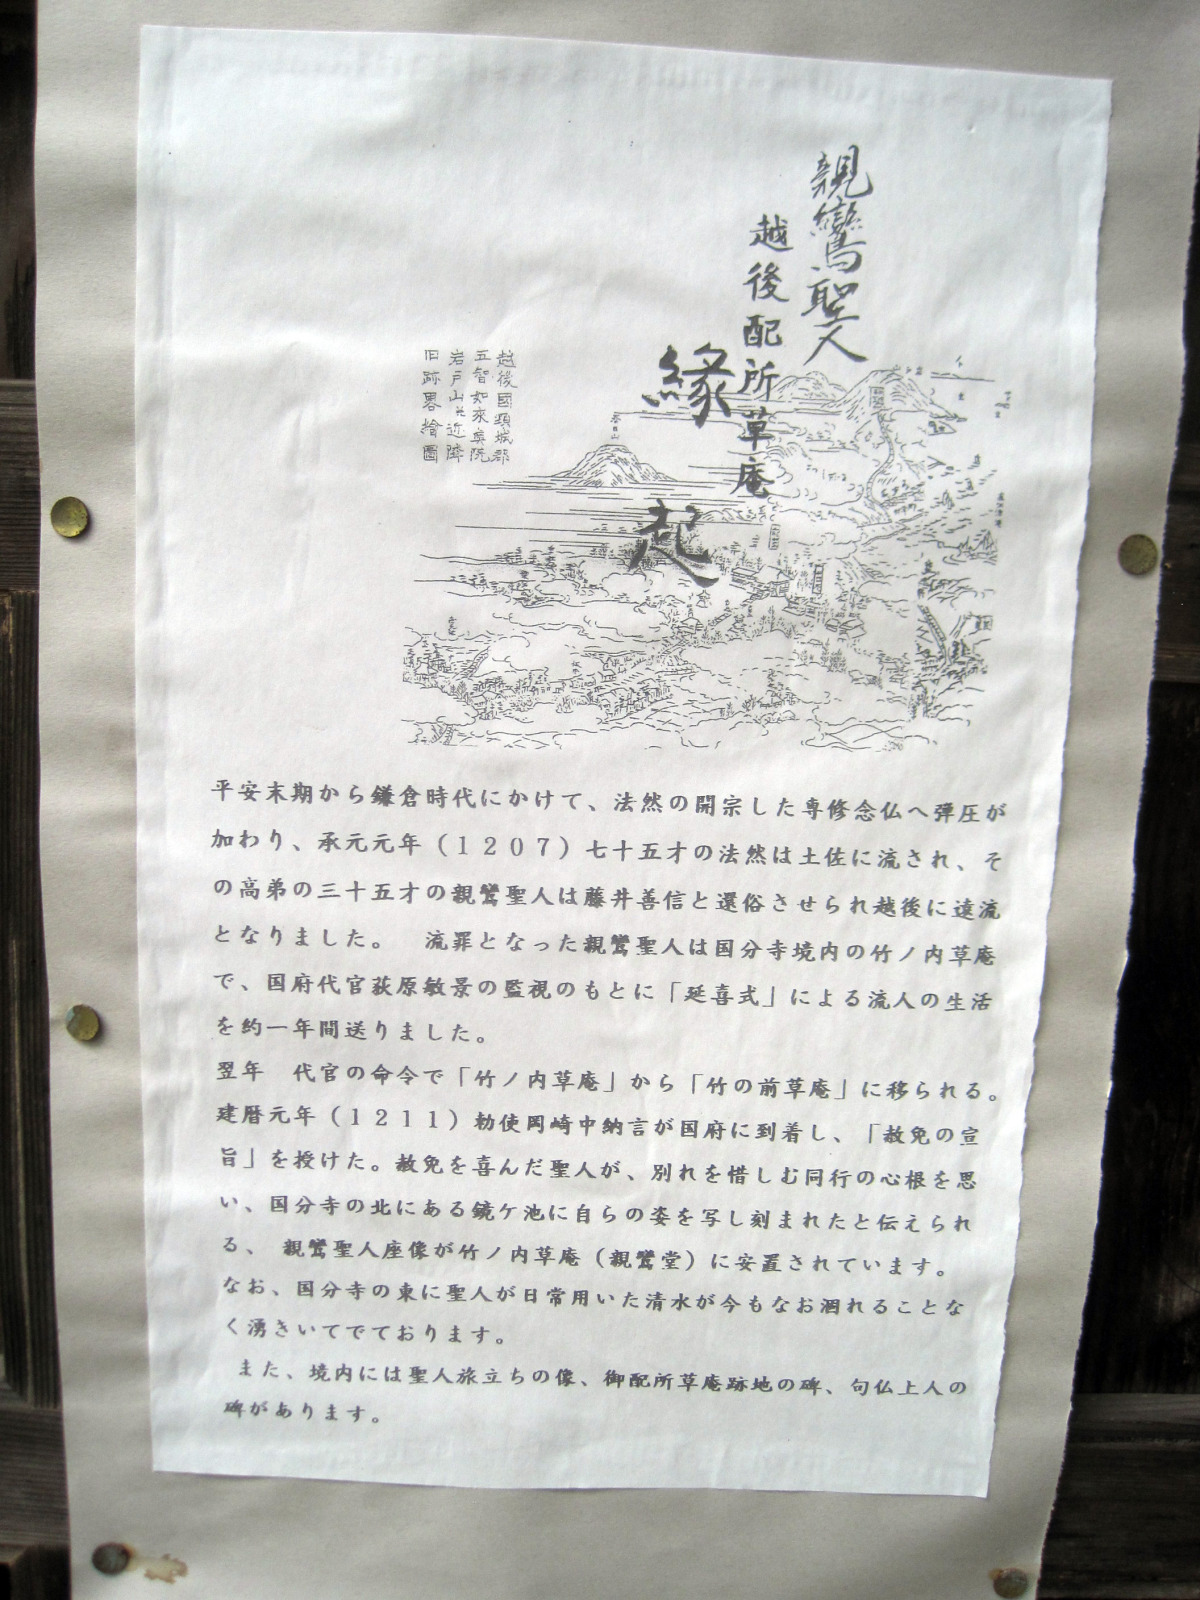 親鸞聖人
越後配所草庵
縁起
越後國頚城郡
五智如來奥院
岩戸山并近隣
旧跡畧繪圖
春日山
平安末期から鎌倉時代にかけて、法然の開宗した専修念仏へ弾圧が
加わり、承元元年（１２０７）七十五才の法然は土佐に流され、そ
の高弟の三十五才の親鸞聖人は藤井善信と還俗させられ越後に遠流
となりました。　流罪となった親鸞聖人は国分寺境内の竹ノ内草庵
で、国府代官荻原敏景の監視のもとに「延喜式」による流人の生活
を約一年間送りました。
翌年　代官の命令で「竹ノ内草庵」から「竹の前草庵」に移られる。
建暦元年（１２１１）勅使岡崎中納言が国府に到着し、「赦免の宣
旨」を授けた。赦免を喜んだ聖人が、別れを惜しむ同行の心根を思
い、国分寺の北にある鏡ケ池に自らの姿を写し刻まれたと伝えられ
る、 親鸞聖人座像が竹ノ内草庵（親鸞堂）に安置されています。
なお、国分寺の東に聖人が日常用いた清水が今もなお涸れることな
く湧きいてでております。
　また、境内には聖人旅立ちの像、御配所草庵跡地の碑、句仏上人の
碑があります。